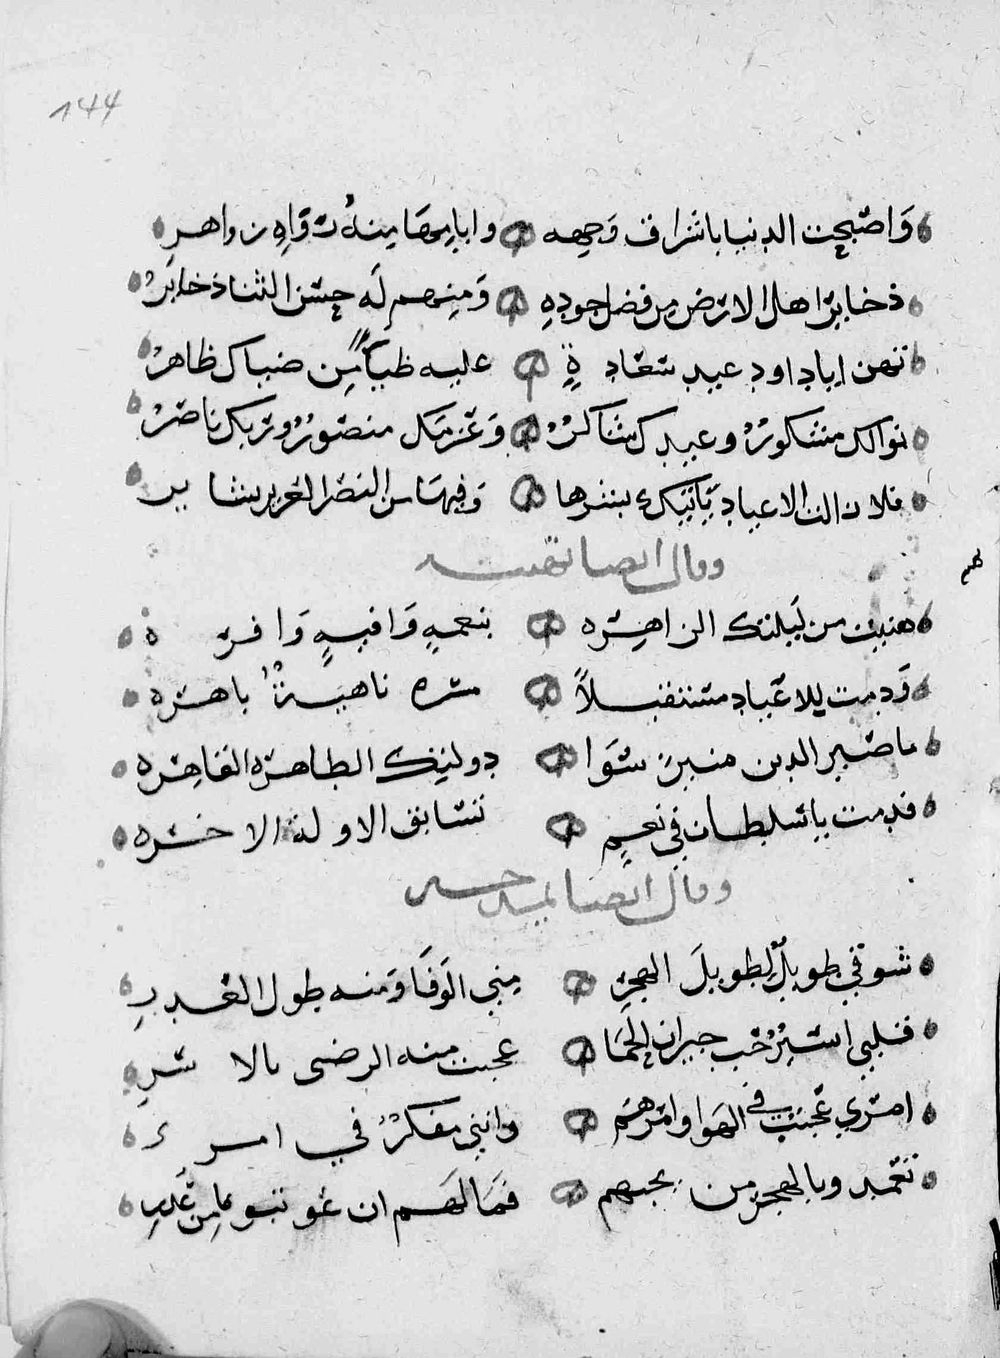 144
وَاصْبحت الدنيا باشراق وَجهه وايامها منهُ زواهٍ زواهر
ذخاير اهل الارض من فضل جوده وَمنهم لَه حسن الثنا ذخاير
تهن اياد اود عيد سعادةٍ عليه ظباً من ضياك ظاهر
نوالك مشكورٌ وعبدك شاكرٌ وَعزمك منصورٌ وربك ناصر
فلا زالت الاعياد تأتيك بنشرها وَفيها من النصر العزيز بشاير
وقال ايضا تهنية
هم
هنيت من ليلتك الزاهره بنعمةٍ وَافيةٍ وَافره
وَدمت للاعياد مستقبلاً مسره ناهيةٌ باهره
ما ضير الدين منير سوَا دولتك الطاهره القاهره
فدمت يا سلطان في نعيم تسابق الاولة الاخره
وقال ايضا يمدحه
شوقي طويلٌ لطويلَ الهجر منى الوَفا وَمنه طول الغدرِ
قلبي اسير حب جيران الحما عجبت منه الرضى بالاسرِ
امري عجيب في الهوا وامرهم وانني مفكرٌ في امري
تعمدوا بالهجر من يحبهم فمَا لهم ان عوتبوا من عذر